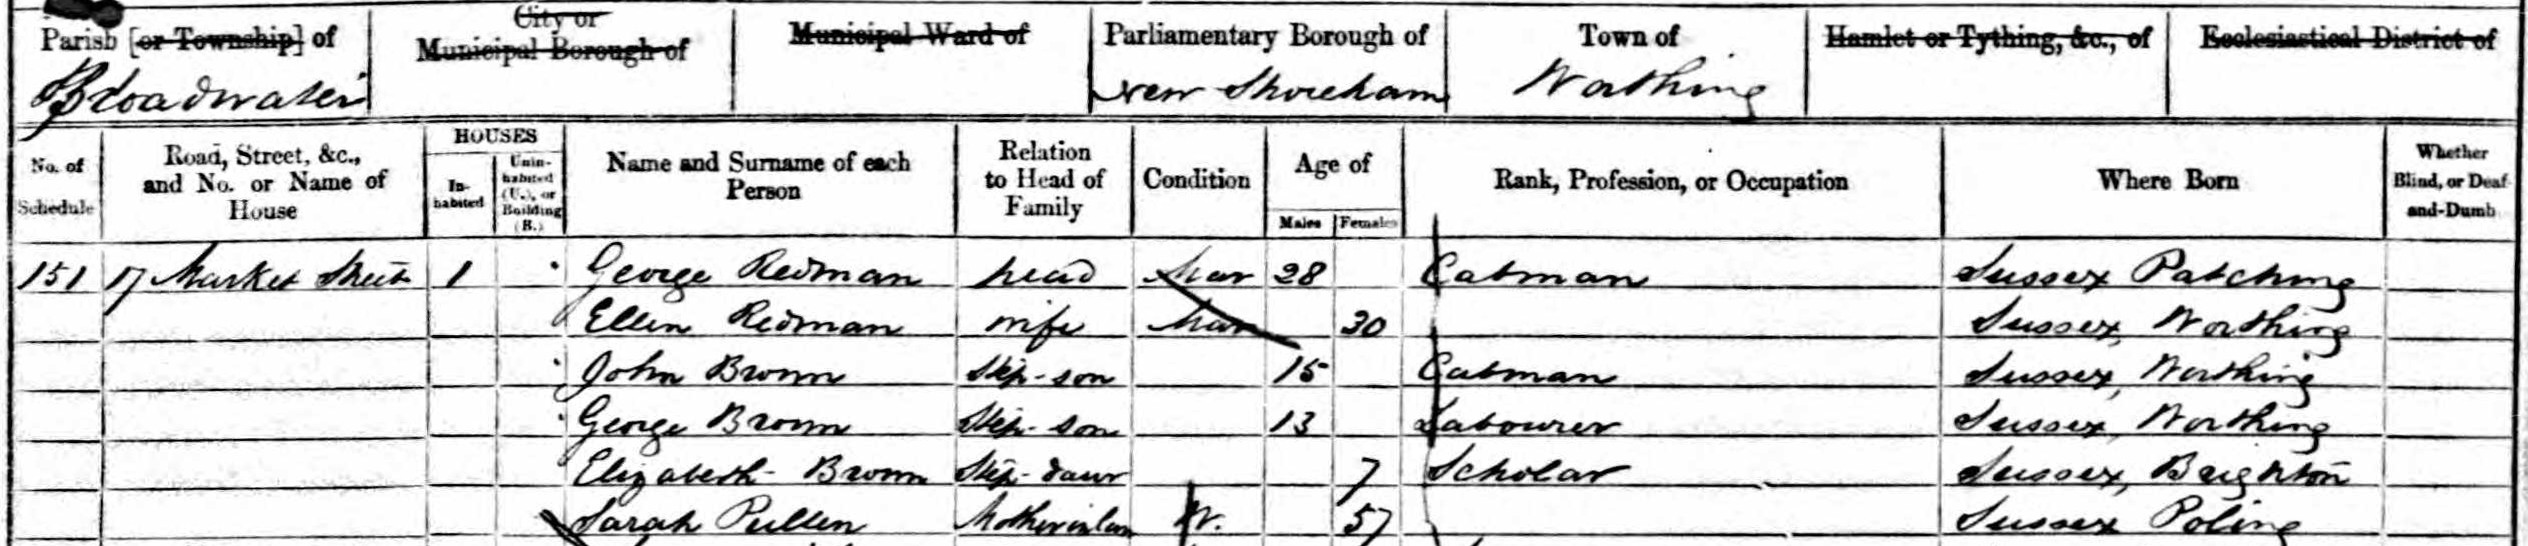 Parish [or Township] of
City or
Municipal Borough of
Municipal Ward of
Parliamentary Borough of
Town of
Hamlet or Tything, &c., of
Ecclesiastical District of
Broadwater
New Shoreham
Worthing
No. of
Schedule
Road, Street, &c.,
and No. or Name of
House
HOUSES
In-
habited
Unin-
habited
(U.), or
Building
(B.)
Name and Surname of each
Person
Relation
to Head of
Family
Condition
Age of
Males
Females
Rank, Profession, or Occupation
Where Born
Whether
Blind, or Deaf-
and-Dumb
151 17 Market Street 1 George Redman head Mar 28 Cabman Sussex Patching
Ellen Redman wife Mar 30 Sussex, Worthing
John Brown Step-son 15 Cabman Sussex, Worthing
George Brown Step-son 13 Labourer Sussex, Worthing
Elizabeth Brown Step-daur 7 Scholar Sussex, Brighton
Sarah Pullen Mother in law W. 57 Sussex Poling